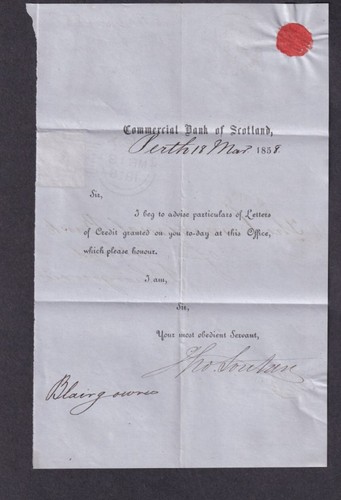 Commercial Bank of Scotland,
Perth 18 Mar 1858.
Sir,
I beg to advise particulars of Letters
of Credit granted on you to-day at this Office,
which please honour.
I am,
Sir,
Your most obedient Servant,
Blairgowrie